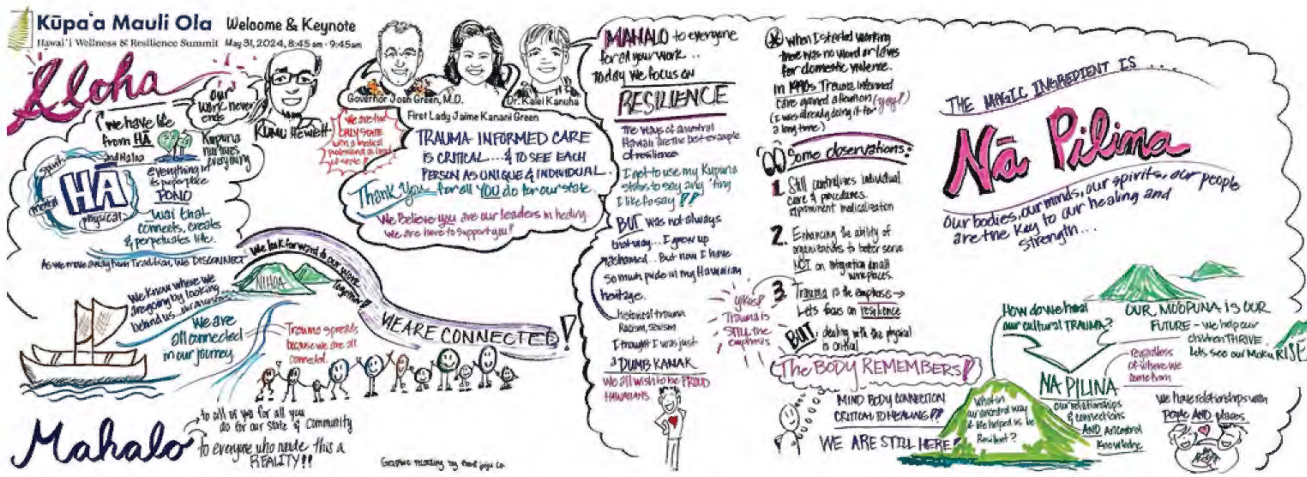 Kūpaʻa Mauli Ola
Welcome & Keynote
Hawaiʻi Wellness & Resilience Summit
May 31, 2024, 8:45 am - 9:45am
Aloha
our
work never
ends
Kumu Hewett
we have life
from HĀ
and Haloa
Kupuna
nurtures
everything
spirit
mental
physical
HĀ
everything in
its proper place
PONO
wai that
connects, creates
& perpetuates life.
As we move away from Tradition, we DISCONNECT
We look forward to our work
together!
NIHOA
We know where we
are going by looking
behind us...
We are
all connected
in our journey
Trauma spreads
because we are all
connected.
WE ARE CONNECTED!
Mahalo
to all of you for all you
do for our state & community
to everyone who made this a
REALITY!!
Graphic recording by
Governor Josh Green, M.D.
First Lady Jaime Kanani Green
Dr. Kalei Kanuha
We are the
ONLY STATE
with a medical
professional as head
of state!
TRAUMA INFORMED CARE
IS CRITICAL....& TO SEE EACH
PERSON AS UNIQUE & INDIVIDUAL.
Thank you for all YOU do for our state.
We Believe you are our leaders in healing.
We are here to support you!
MAHALO to everyone
for all your work...
Today we focus on
RESILIENCE
The ways of ancestral
Hawaii are the best example
of resilience
I get to use my Kupuna
status to say anything
I like to say!!
BUT was not always
that way... I grew up
ashamed... But now I have
so much pride in my Hawaiian
heritage.
historical trauma
Racism, sexism
I thought I was just
a DUMB KANAK
We all wish to be PROUD
HAWAIIANS
When I started working
there was no word or laws
for domestic violence.
In 1990s Trauma Informed
care gained attention (yay!)
(I was already doing it for
a long time.)
Some observations:
1. Still centralizes individual
care & procedures.
medicalization
2. Enhancing the ability of
organizations to better serve
NOT on integration in all
workplaces.
3. Trauma is the emphasis →
Lets focus on resilience
Yikes!
Trauma is
STILL the
emphasis
BUT: dealing with the physical
is critical
The BODY REMEMBERS!
MIND BODY CONNECTION
CRITICAL TO HEALING!!
WE ARE STILL HERE!
THE MAGIC INGREDIENT IS...
Nā Pilina
our bodies, our minds, our spirits, our people
are the key to our healing and
strength...
How do we heal
our cultural TRAUMA?
What in
our ancestral way
of life helped us be
Resilient?
NA PILINA
our relationships
& connections
AND Ancestral
Knowledge
OUR MOOPUNA IS OUR
FUTURE - we help our
children THRIVE
Lets see our Moku RISE
regardless
of where we
come from
We have relationships with
people AND places